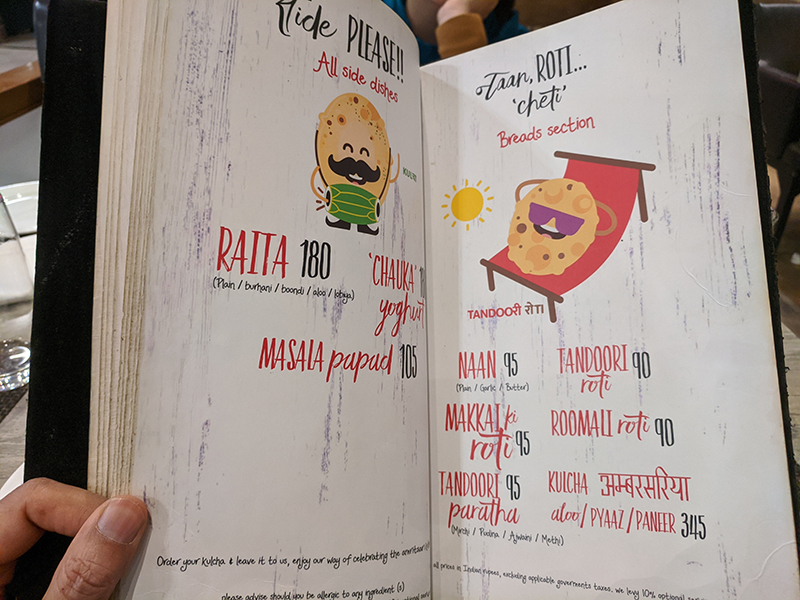 PLEASE!!
All side dishes
RAITA 180
(Plain / burhani / boondi / aloo / lobiya)
'CHAUKA'
yoghurt
MASALA papad 105
Order your kulcha & leave it to us, enjoy our way of celebrating the
please advise should you be allergic to any ingredient (s)
Naan, ROTI...
'cheti'
Breads section
TANDOORI रोटी
NAAN 95
(Plain / Garlic / Butter)
TANDOORI
roti 90
MAKKAI ki
roti 95
ROOMALI roti 90
TANDOORI 95
paratha
(Mirchi / Pudina / Ajwaini / Methi)
KULCHA अम्बरसरिया
aloo/PYAAZ/PANEER 345
all prices in Indian rupees, excluding applicable governments taxes. we levy 10% optional